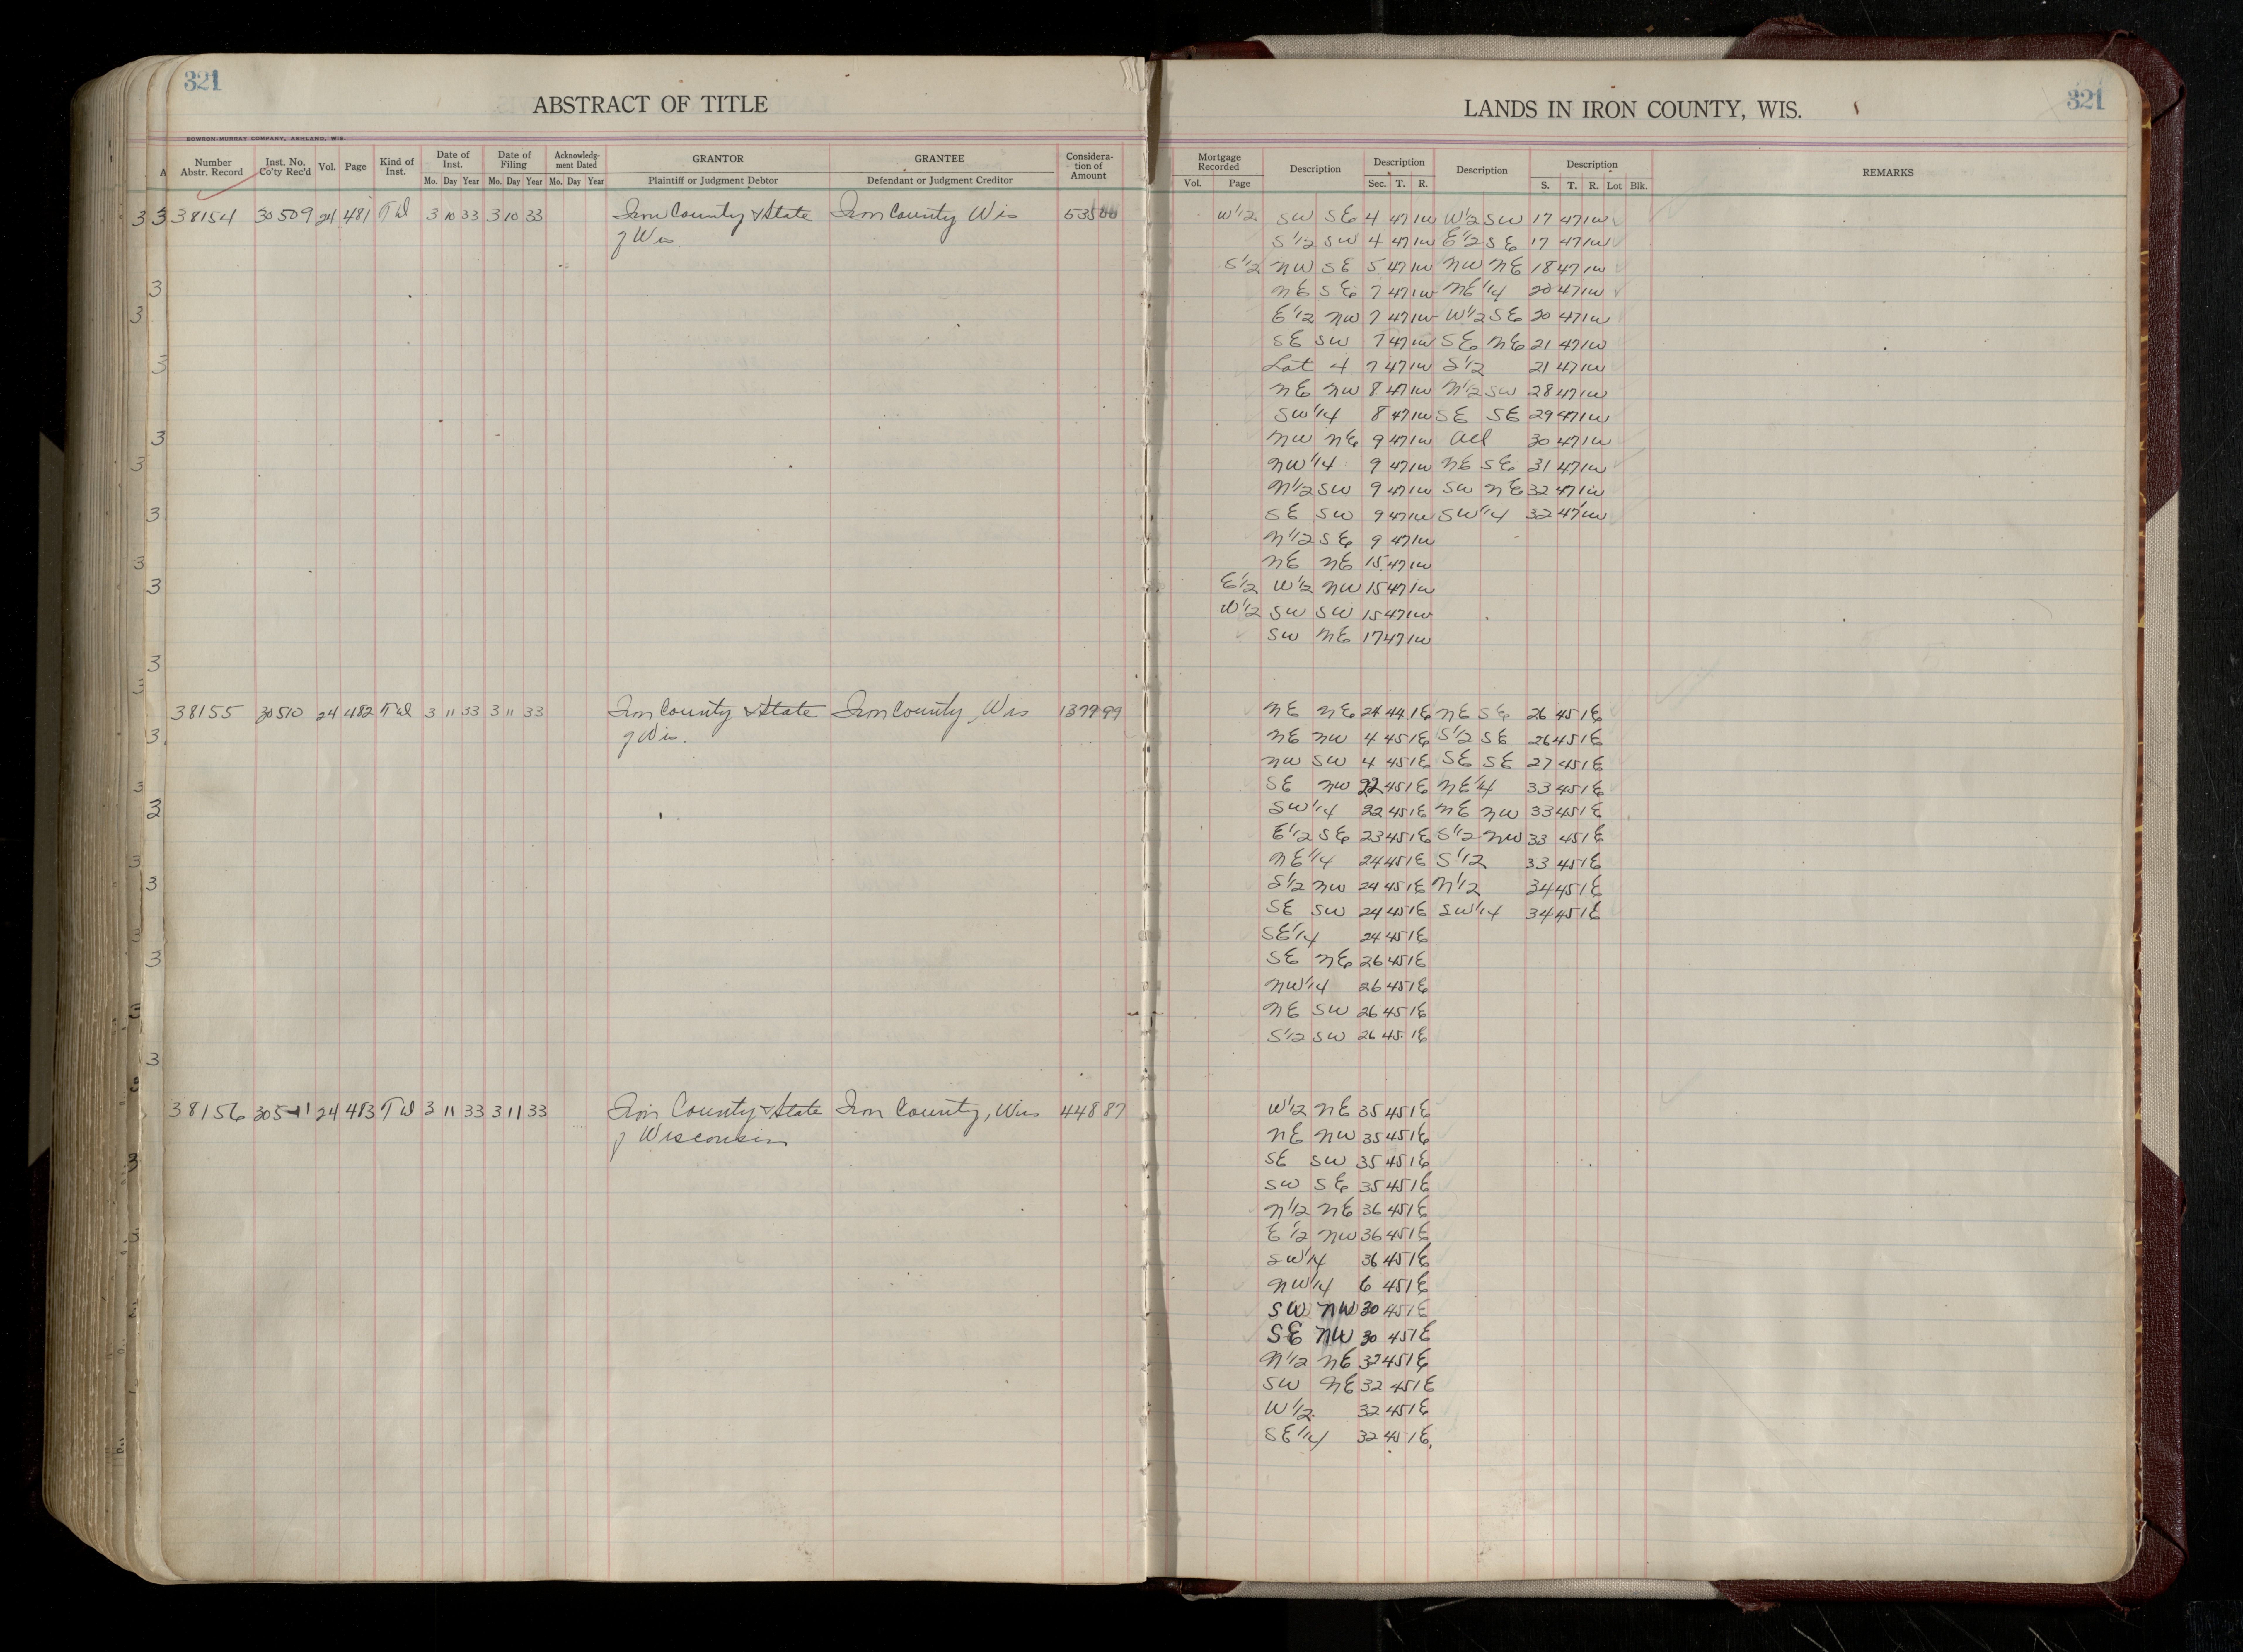 321
ABSTRACT OF TITLE
BOWRON-MURRAY COMPANY, ASHLAND, WIS.
Number Abstr. Record Inst. No. Co'ty Rec'd Vol. Page Kind of Inst. Date of Inst. Date of Filing Acknowledg- ment Dated GRANTOR GRANTEE Considera- tion of Amount
Mo. Day Year Mo. Day Year Mo. Day Year Plaintiff or Judgment Debtor Defendant or Judgment Creditor
38154 30509 24 481 T D 3 10 33 3 10 33 Iron County & State Iron County Wis 535
of Wis
38155 30510 24 482 T D 3 11 33 3 11 33 Iron County & State Iron County, Wis 1379 99
of Wis.
38156 30511 24 483 T D 3 11 33 3 11 33 Iron County & State Iron County, Wis 448 87
of Wisconsin
LANDS IN IRON COUNTY, WIS.
321
Mortgage Recorded Description Description Description Description REMARKS
Vol. Page Sec. T. R. S. T. R. Lot Blk.
W 1/2 SW SE 4 47 1W W 1/2 SW 17 47 1W
S 1/2 SW 4 47 1W E 1/2 SE 17 47 1W
S 1/2 NW SE 5 47 1W NW NE 18 47 1W
NE SE 7 47 1W NE 1/4 20 47 1W
E 1/2 NW 7 47 1W W 1/2 SE 20 47 1W
SE SW 7 47 1W SE NE 21 47 1W
Lot 4 7 47 1W S 1/2 21 47 1W
NE NW 8 47 1W N 1/2 SW 28 47 1W
SW 1/4 8 47 1W SE SE 29 47 1W
NW NE 9 47 1W All 30 47 1W
NW 1/4 9 47 1W NE SE 31 47 1W
N 1/2 SW 9 47 1W SW NE 32 47 1W
SE SW 9 47 1W SW 1/4 32 47 1W
N 1/2 SE 9 47 1W
NE NE 15 47 1W
E 1/2 W 1/2 NW 15 47 1W
W 1/2 SW SW 15 47 1W
SW NE 17 47 1W
NE NE 24 44 1E NE SE 26 45 1E
NE NW 4 45 1E S 1/2 SE 26 45 1E
NW SW 4 45 1E SE SE 27 45 1E
SE NW 22 45 1E NE 1/4 33 45 1E
SW 1/4 22 45 1E NE NW 33 45 1E
E 1/2 SE 23 45 1E S 1/2 NW 33 45 1E
NE 1/4 24 45 1E S 1/2 33 45 1E
S 1/2 NW 24 45 1E N 1/2 34 45 1E
SE SW 24 45 1E SW 1/4 34 45 1E
SE 1/4 24 45 1E
SE NE 26 45 1E
NW 1/4 26 45 1E
NE SW 26 45 1E
S 1/2 SW 26 45 1E
W 1/2 NE 35 45 1E
NE NW 35 45 1E
SE SW 35 45 1E
SW SE 35 45 1E
N 1/2 NE 36 45 1E
E 1/2 NW 36 45 1E
SW 1/4 36 45 1E
NW 1/4 6 45 1E
SW NW 30 45 1E
SE NW 30 45 1E
N 1/2 NE 32 45 1E
SW NE 32 45 1E
W 1/2 32 45 1E
SE 1/4 32 45 1E